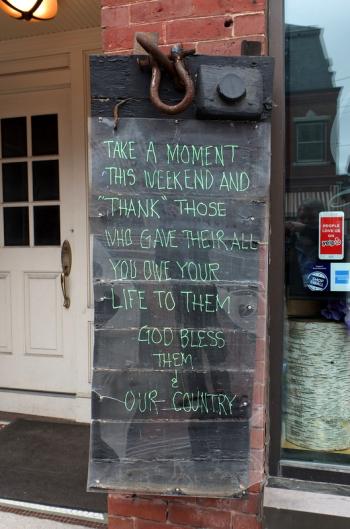 TAKE A MOMENT
THIS WEEKEND AND
"THANK" THOSE
WHO GAVE THEIR ALL
YOU OWE YOUR
LIFE TO THEM
GOD BLESS
THEM
&
OUR COUNTRY
PEOPLE
LOVE US
ON
yelp